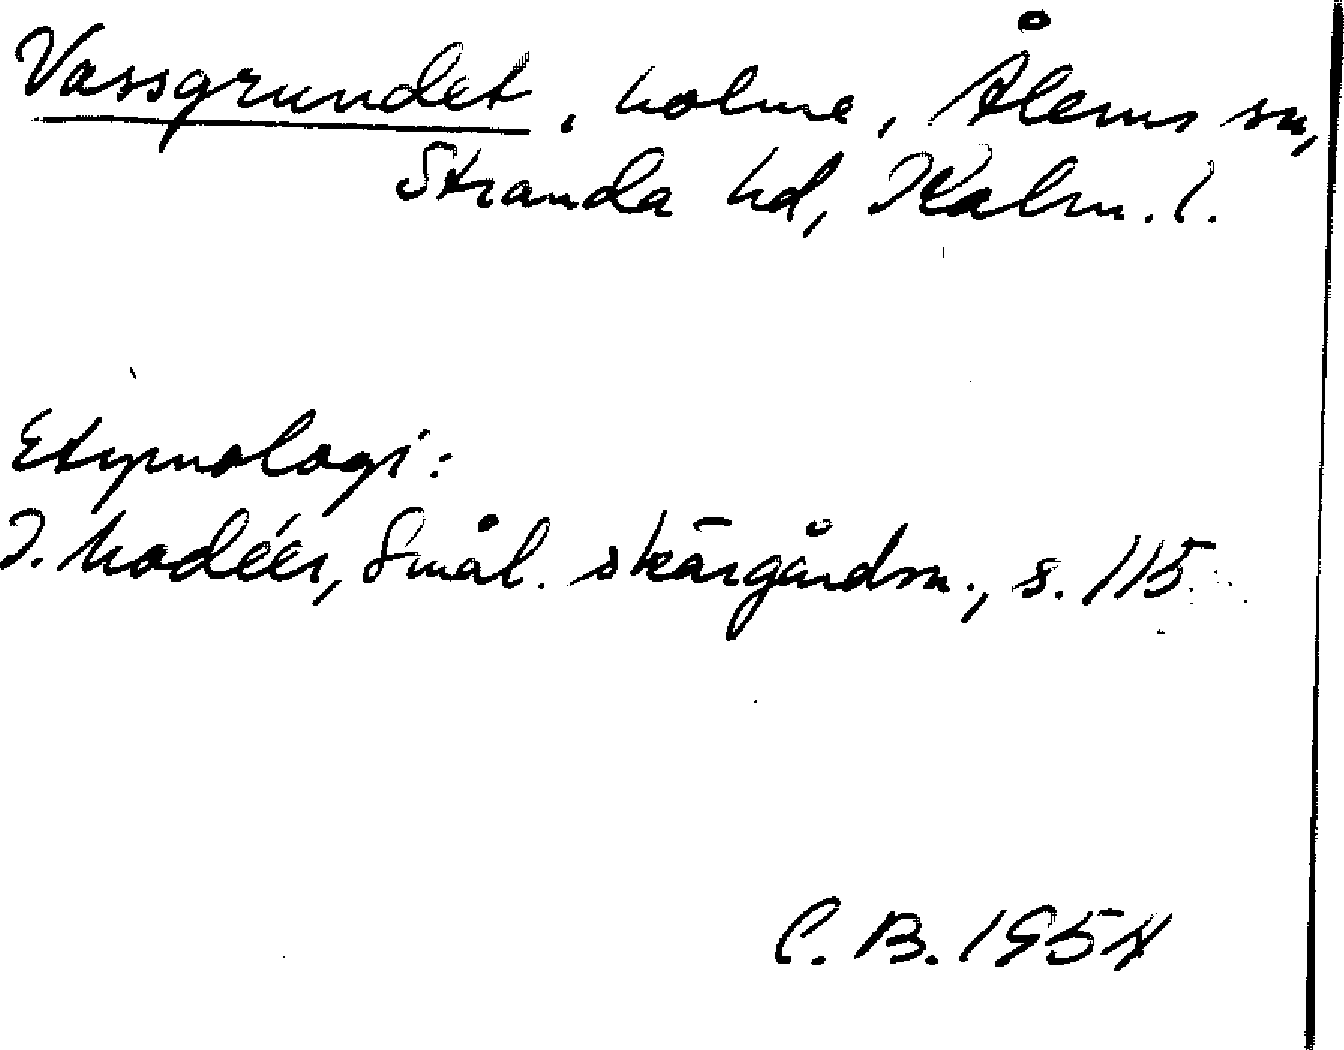 Vassgrundet, holme, Ålems sn,
Stranda hd, Kalm. l.
Etymologi:
I. Modéer, Smål. skärgårdsn., s. 115.
C. B. 1954